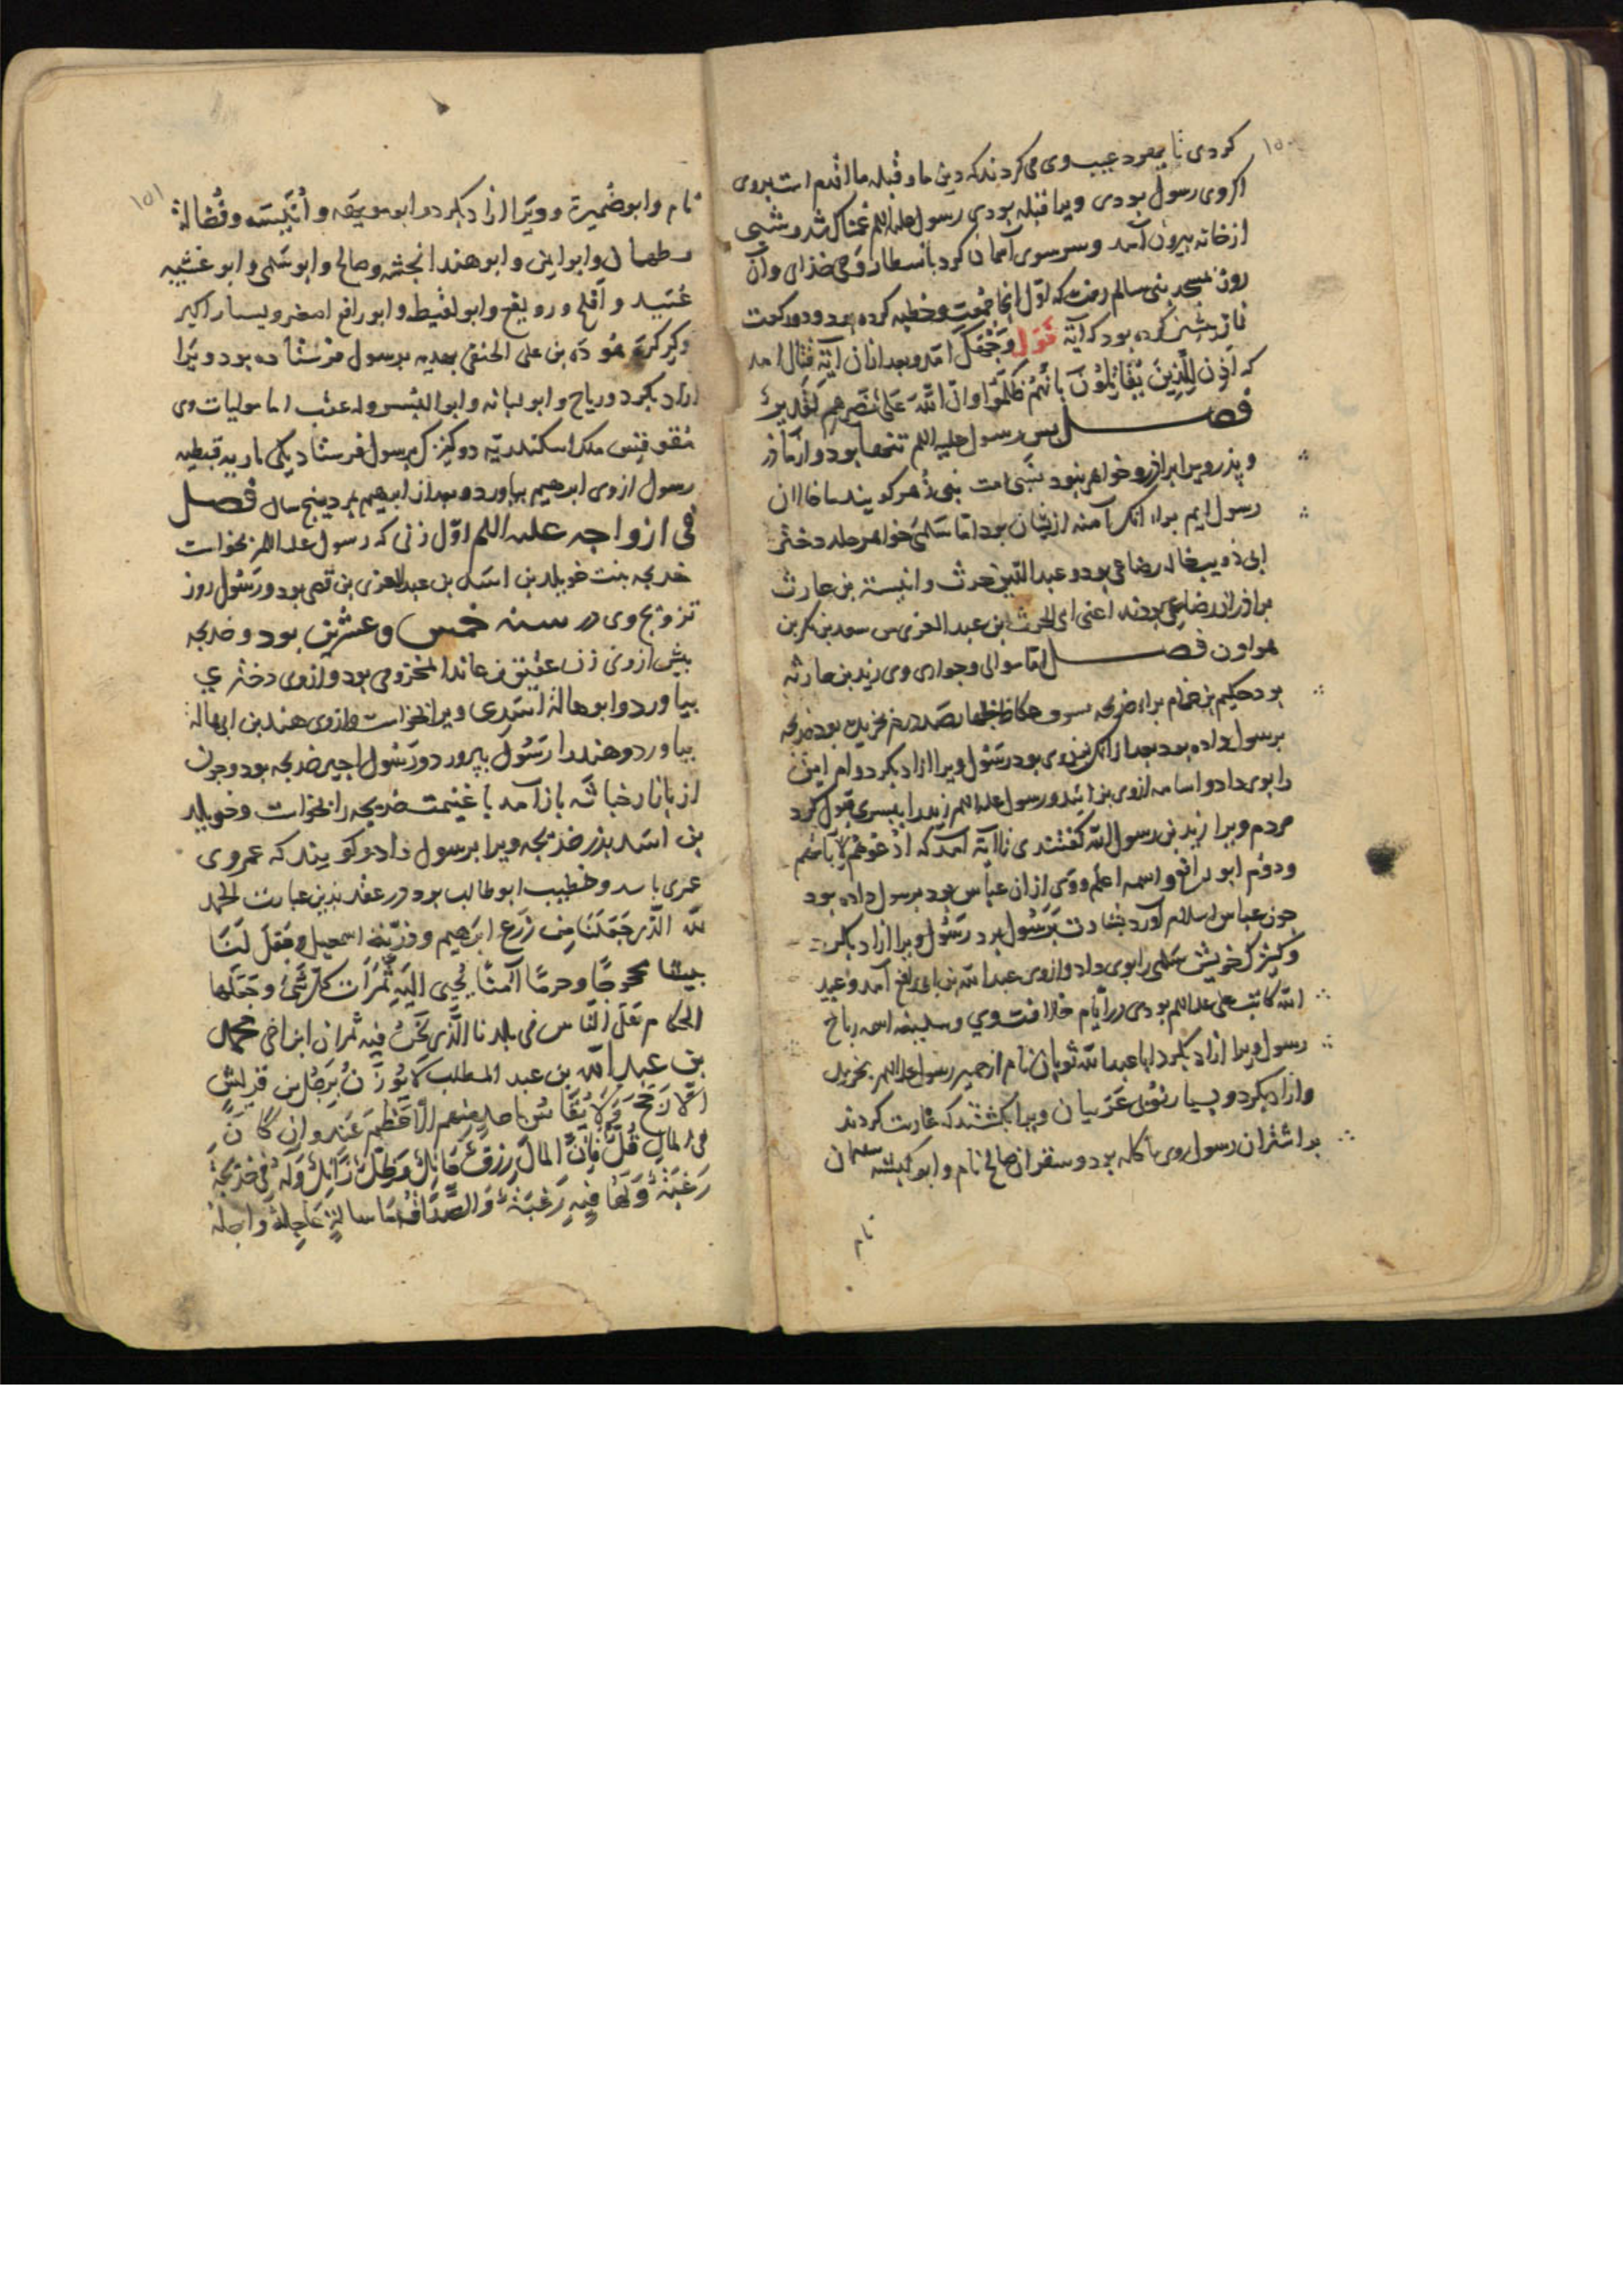 ۱۵۰
کردی تا یهود عیب وی می کردند که دین ما و قبله ما اقدم است بروی
اکر وی رسول بودی ویرا قبله بودی رسول علیه السلم غمناک شد و شبی
از خانه بیرون آمد و سر سوی آسمان کرد بانتظار وحی خدای و آن
روز بمسجد بنی سالم رفت که اول آنجا جمعت و خطبه کرده بود و دو رکعت
نماز پیشین کرده بود که آیة فَوَلِّ وَجْهَکَ آمد و بعد از آن آیة قتال آمد
که اُذِنَ لِلَّذِینَ یُقَاتَلُونَ بِاَنَّهُمْ ظُلِمُوا وَاِنَّ اللّهَ عَلَی نَصْرِهِمْ لَقَدِیرٌ
فصل پس رسول علیه السلم تنها بود و از ماذر
و پذر ویرا براذر و خواهر نبود بنی زهره کویند ما خالان
رسول ایم براء آنک آمنه ازیشان بود اما سلمی خواهر حلیمه دختر
ابی ذویب خاله رضاعی بود و عبد الله بن حرث و انیسة بن حارث
براذران رضاعی بودند اعنی الحرث ابن عبد العزی بن سعد بن بکر بن
هوازن فصل اما موالی و جواری وی زید بن حارثه
بود حکیم بن حزام براء خدیجه بسوق عکاظ بچهارصد درم خریده بود خدیجه
برسول داده بود بعد از آنک زن وی بود رسول ویرا آزاد بکرد و ام ایمن
را بوی داد و اسامه از وی بزائید و رسول علیه السلم زید را بپسری قبول کرد
مردم ویرا زید بن رسول الله کفتندی تا آیة آمد که ادْعُوهُمْ لِآبَائِهِمْ
و دوم ابو رافع و اسمه اسلم و وی از آن عباس بود برسول داده بود
چون عباس اسلام آورد بشارت برسول برد رسول ویرا آزاد بکرد
و کنیزک خویش سلمی را بوی داد و از وی عبد الله بن ابی رافع آمد و عبید
الله کاتب علی علیه السلم بودی در ایام خلافت وی و سفینه اسمه رباح
رسول ویرا آزاد بکرد ابا عبد الله ثوبان نام از حمیر رسول علیه السلم بخرید
و آزاد بکرد و یسار نوبی عرنیان ویرا بکشتند که غارت کردند
بر اشتران رسول وی با کله بود و سقران صالح نام و ابو کبشه سلیمان
نام
۱۵۱
نام و ابو ضُمیرة و ویرا آزاد بکرد و ابو مویهبه و اُنَیسَه و فُضالة
و طهمان و ابو ایمن و ابو هند انجشه و صالح و ابو سلمی و ابو عسیب
عُبَید و افلح و رویفع و ابو لقیط و ابو رافع اصغر و یسار اکبر
و کرکرة هوذة بن علی الحنفی بهدیه برسول فرستاده بود ویرا
آزاد بکرد و رباح و ابو لبابه و ابو الیسر و له عقب اما مولیات وی
مقوقس ملک اسکندریه دو کنیزک برسول فرستاد یکی ماریه قبطیه
رسول از وی ابرهیم بیاورد و بعد از ابرهیم بمرد بپنج سال فصل
فی ازواجه علیه السلم اوّل زنی که رسول علیه السلم بخواست
خدیجه بنت خویلد بن اسد بن عبد العزی بن قصی بود و رسول روز
تزویج وی در سنه خمس و عشرین بود و خدیجه
پیش از وی زن عتیق بن عائذ المخزومی بود و از وی دختری
بیاورد و ابو هالة اسدی ویرا بخواست و از وی هند بن ابی هالة
بیاورد و هند را رسول بپرورد و رسول اجیر خدیجه بود و چون
از بازار حباشه باز آمد با غنیمت خدیجه را بخواست و خویلد
بن اسد پذر خدیجه ویرا برسول داد و کویند که عمر وی
و خطیب ابو طالب بود در عقد بذین عبارت الحمد
لله الذی جَعَلَنَا مِن زَرعِ ابرهیم و ذرّیّة اسمعیل و جَعَلَ لَنَا
بیتا محجوجًا و حرمًا آمنًا یُجبی الیه ثَمَرَات کل شیء و جعلنا
الحکام علی الناس فی بلدنا الذی نحن فیه ثم ان ابن اخی محمد
بن عبد الله بن عبد المطلب لا یُوزَنُ بِرَجُلٍ من قریش
اِلّا رَجَحَ وَ لَا یُقَاسُ باحدٍ منهم اِلّا عَظُمَ عَنه و ان کان
فی المالِ قُلٌّ فانّ المالَ رِزقٌ حَائِلٌ وَ ظِلٌّ زَائِلٌ وَلَهُ فی خدیجة
رَغبَةٌ وَ لَهَا فِیهِ رَغبَةٌ وَ الصَّدَاقُ مَا سالتم عَاجِلُهُ و آجله